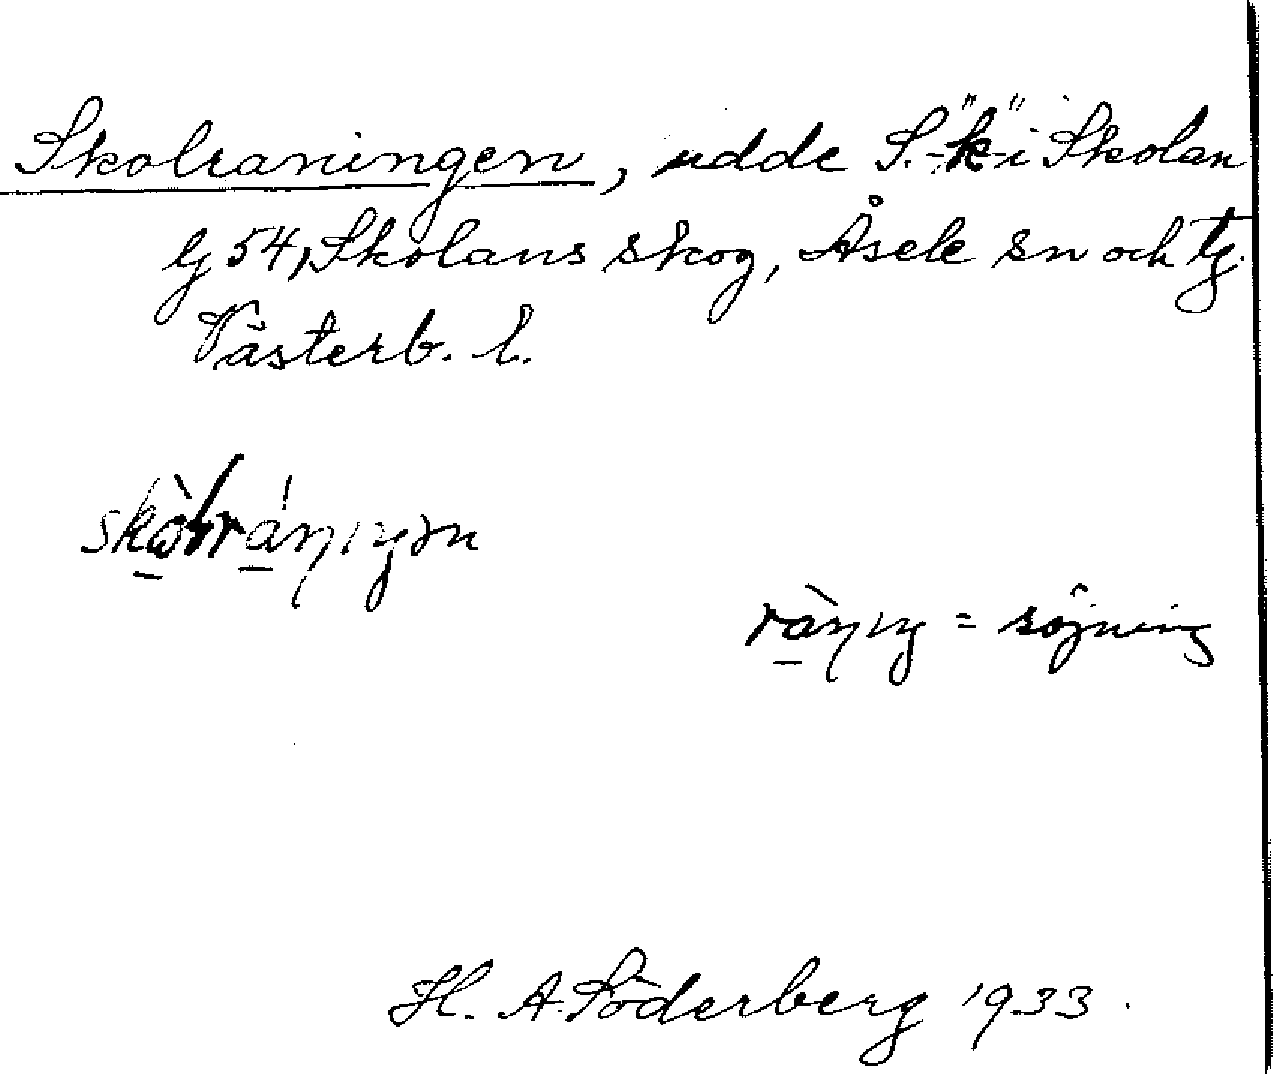 Skolraningen, udde S. "k" i Skolan
lj 54, Skolans skog, Åsele sn och tg.
Västerb. l.
raniŋ = röjning
H. A. Söderberg 1933.